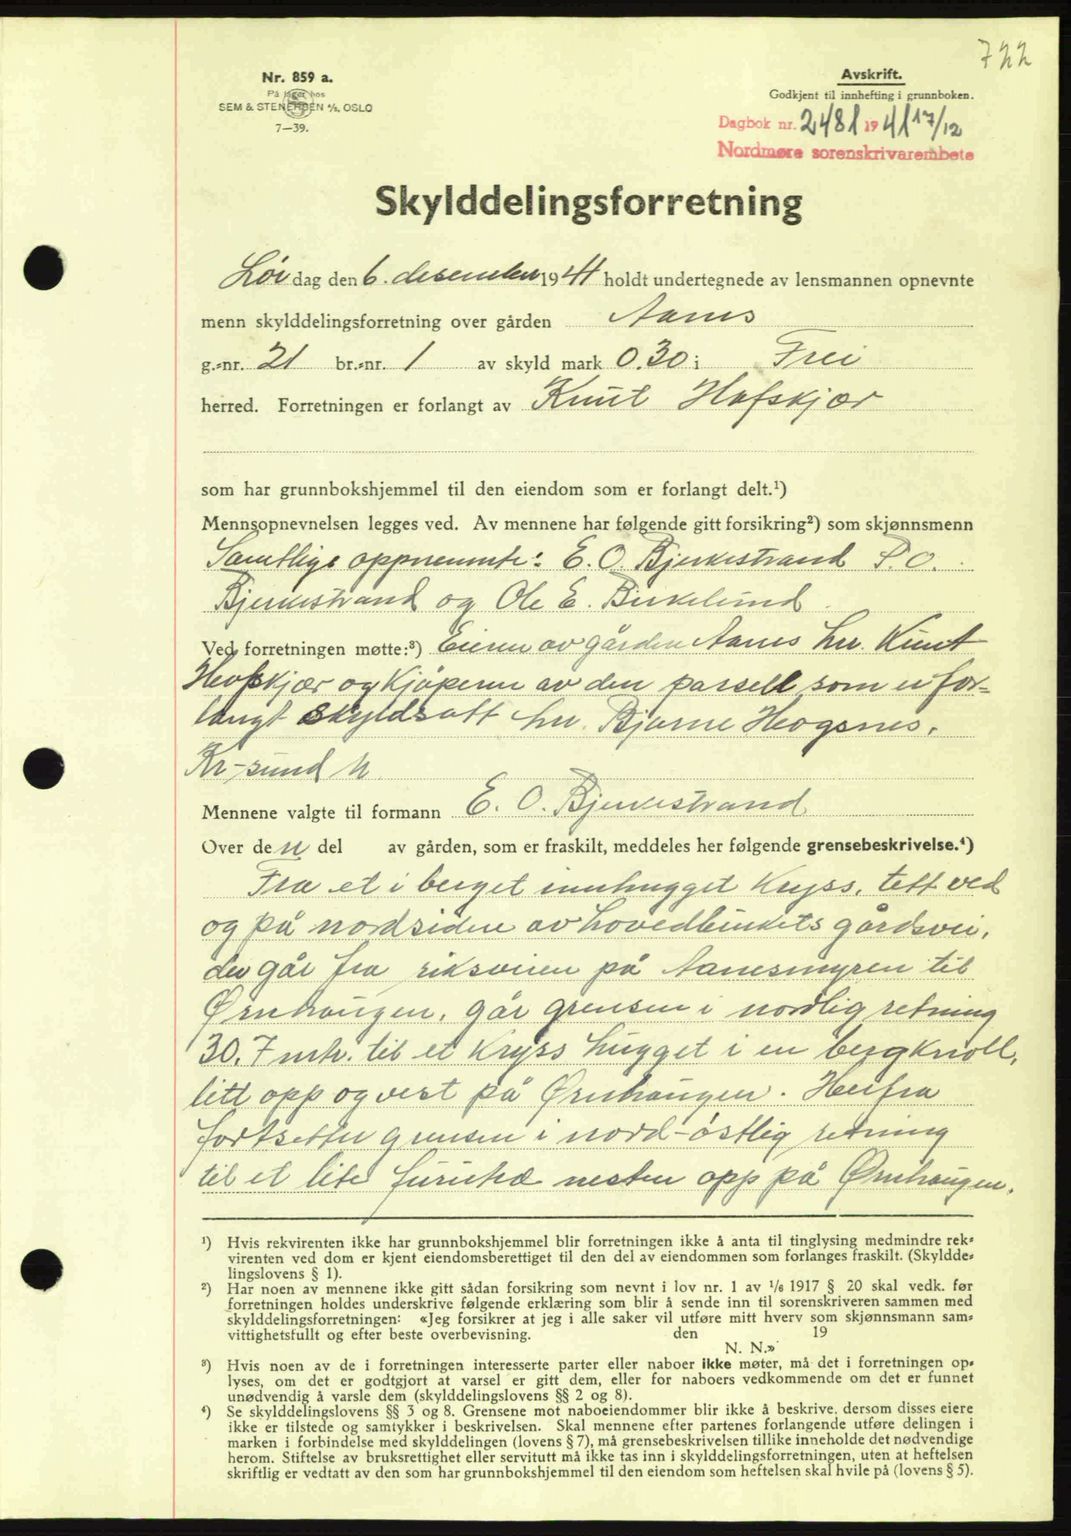 722
Nr. 859 a.
På lager hos
SEM & STENERSEN A/S, OSLO
7—39.
Avskrift.
Godkjent til innhefting i grunnboken.
Dagbok nr. 2481 1941 17/12
Nordmøre sorenskrivarembete
Skylddelingsforretning
Lör dag den 6. desember 1941 holdt undertegnede av lensmannen opnevnte
menn skylddelingsforretning over gården Aanes
g.-nr. 21 br.-nr. 1 av skyld mark 0.30 i Frei
herred. Forretningen er forlangt av Knut Hofskjær
som har grunnbokshjemmel til den eiendom som er forlangt delt.¹)
Mennsopnevnelsen legges ved. Av mennene har følgende gitt forsikring²) som skjønnsmenn
Samtlige oppnevnte: E. O. Bjerkestrand P. O.
Bjerkestrand og Ole E. Birkelund.
Ved forretningen møtte:³) Eieren av gården Aanes hr. Knut
Hofskjær og Kjöperen av den parsell som er for-
langt skyldsatt hr. Bjarne Hogsnes,
Kr-sund N
Mennene valgte til formann E. O. Bjerkestrand
Over den del av gården, som er fraskilt, meddeles her følgende grensebeskrivelse.⁴)
Fra et i berget innhugget Kryss, tett ved
og på nordsiden av hovedbrukets gårdsvei,
der går fra riksveien på Aanesmyren til
Ørnhaugen, går grensen i nordlig retning
30,7 mtr. til et Kryss hugget i en bergknoll,
litt opp og vest på Ørnhaugen. Herfra
fortsetter grensen i nord-östlig retning
til et lite furutre nesten opp på Ørnhaugen.
¹) Hvis rekvirenten ikke har grunnbokshjemmel blir forretningen ikke å anta til tinglysing medmindre rek-
virenten ved dom er kjent eiendomsberettiget til den del av eiendommen som forlanges fraskilt. (Skyldde-
lingslovens § 1).
²) Har noen av mennene ikke gitt sådan forsikring som nevnt i lov nr. 1 av 1/6 1917 § 20 skal vedk. før
forretningen holdes underskrive følgende erklæring som blir å sende inn til sorenskriveren sammen med
skylddelingsforretningen: «Jeg forsikrer at jeg i alle saker vil utføre mitt hverv som skjønnsmann sam-
vittighetsfullt og efter beste overbevisning. den 19
N. N.»
³) Hvis noen av de i forretningen interesserte parter eller naboer ikke møter, må det i forretningen op-
lyses, om det er godtgjort at varsel er gitt dem, eller for naboers vedkommende om det er funnet
unødvendig å varsle dem (skylddelingslovens §§ 2 og 8).
⁴) Se skylddelingslovens §§ 3 og 8. Grensene mot naboeiendommer blir ikke å beskrive, dersom disses eiere
ikke er tilstede og samtykker i beskrivelsen. Skal mennene efter partenes forlangende utføre delingen i
marken i forbindelse med skylddelingen (lovens § 7), må grensebeskrivelsen tillike inneholde det nødvendige
herom. Stiftelse av bruksrettighet eller servitutt må ikke tas inn i skylddelingsforretningen, uten at heftelsen
skriftlig er vedtatt av den som har grunnbokshjemmel til den eiendom som heftelsen skal hvile på (lovens § 5).